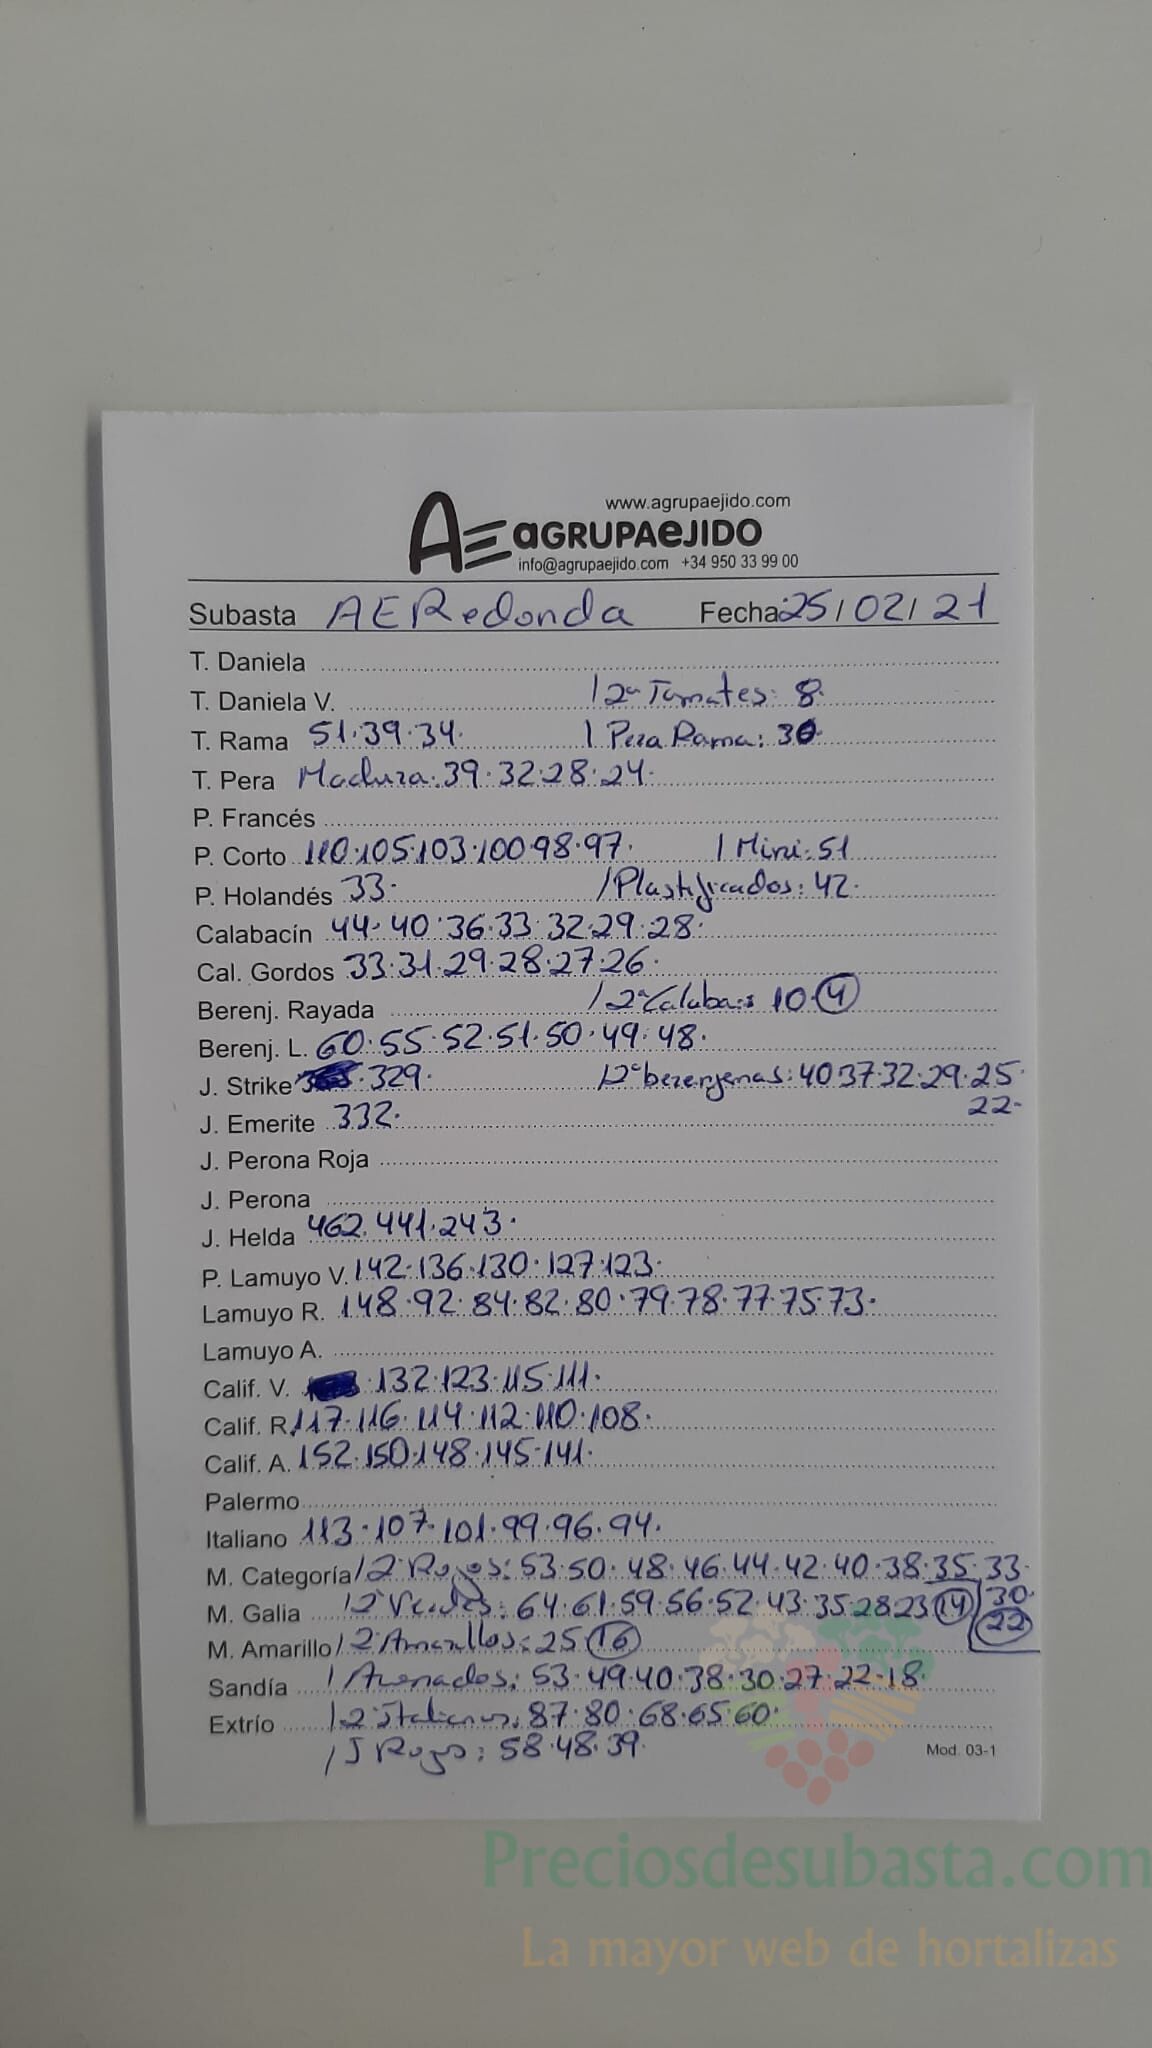 www.agrupaejido.com
AE aGRUPAeJIDO
info@agrupaejido.com +34 950 33 99 00
Subasta AERedonda Fecha:25/02/21
T. Daniela
T. Daniela V. / 2ª Tomates: 8.
T. Rama 51.39.34. / Pera Rama: 30.
T. Pera Madura:.39.32.28.24.
P. Francés
P. Corto 110.105.103.100.98.97. / Mini:.51
P. Holandés 33. / Plastificados: 42.
Calabacín 44.40.36.33.32.29.28.
Cal. Gordos 33.31.29.28.27.26.
Berenj. Rayada / 2ª Calaba:s 10.4
Berenj. L. 60.55.52.51.50.49.48.
J. Strike .329. / 2ª berenjenas: 40 37.32.29.25.
22.
J. Emerite 332.
J. Perona Roja
J. Perona
J. Helda 462.441.243.
P. Lamuyo V. 142.136.130.127.123.
Lamuyo R. 148.92.84.82.80.79.78.77.75.73.
Lamuyo A.
Calif. V. .132.123.115.111.
Calif. R. 117.116.114.112.110.108.
Calif. A. 152.150.148.145.141.
Palermo
Italiano 113.107.101.99.96.94.
M. Categoría / 2ª Rojos: 53.50.48.46.44.42.40.38.35.33.
M. Galia / 2ª Verdes: 64.61.59.56.52.43.35.28.23.14 30.
22
M. Amarillo / 2ª Amarillos: 25.16
Sandía / Asurados: 53.49.40.38.30.27.22.18.
Extrío / 2ª Italianos: 87.80.68.65.60.
/ J Rojos: 58.48.39.
Mod. 03-1
Preciosdesubasta.com
La mayor web de hortalizas